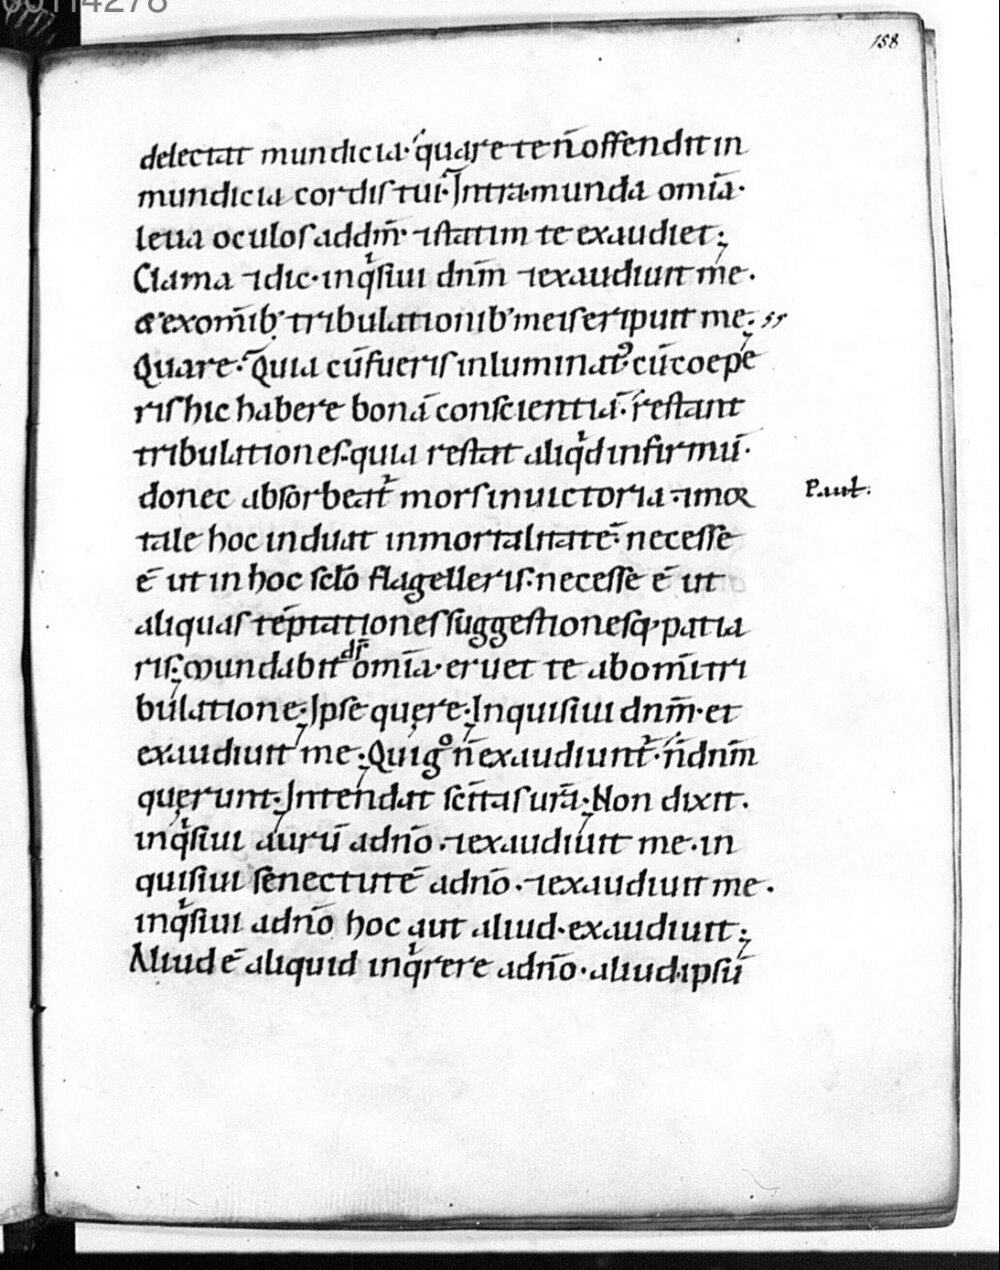 00114278
158
delectat mundicia· quare te n̄ offendit in
mundicia cordis tui· Intra· munda om̄ia·
leua oculos ad dm̄· ⁊ statim te exaudiet;
Clama ⁊ dic· inqͥsiui dnm̄ ⁊ exaudiuit me·
& ex om̄ib; tribulationib; meis eripuit me; ss
Quare· Quia cū fueris inluminatꝰ cū coepe
ris hic habere bonā conscientiā· restant
tribulationes· quia restat aliqͥd infirmū·
donec absorbeatͬ mors in uictoria ⁊ inmor
Paul·
tale hoc induat inmortalitatē· necesse
ē ut in hoc sclō flagelleris· necesse ē ut
aliquas tēptationes suggestionesq; patia
ris; Mundabit ds̄ om̄ia· eruet te ab om̄i tri
bulatione; Ipse quęre; Inquisiui dnm̄· et
exaudiuit me; Qui gͦ n̄ exaudiuntͬ· n̄ dnm̄
quęrunt; Intendat scītas urā; Non dixit·
inqͥsiui aurū a dn̄o· ⁊ exaudiuit me· in
quisiui senectutē a dn̄o· ⁊ exaudiuit me·
inqͥsiui a dn̄o hoc aut aliud· exaudiuit;
Aliud ē aliquid inqͥrere a dn̄o· aliud ipsū